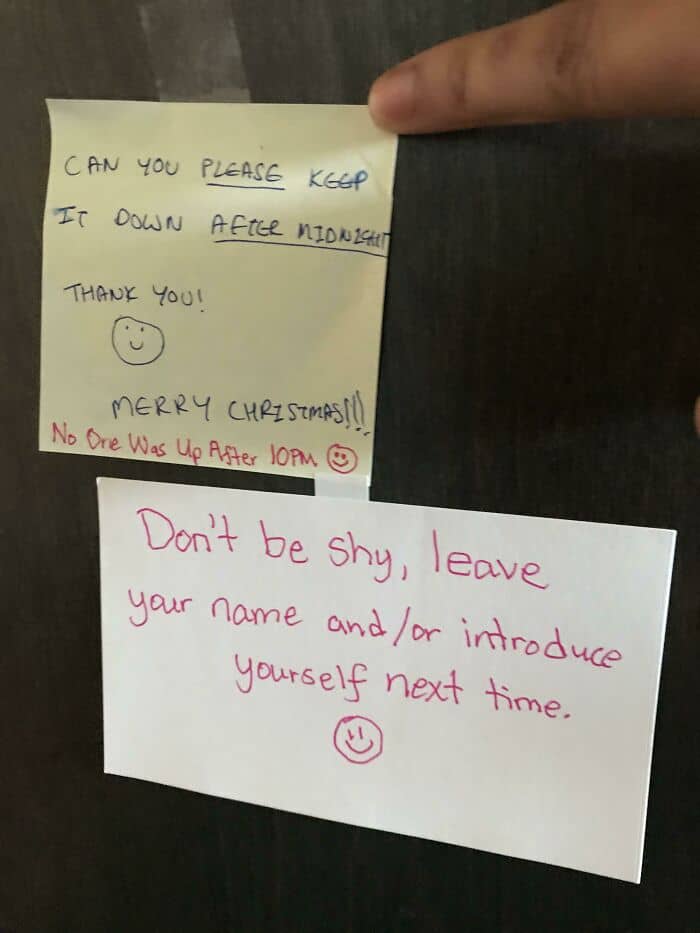 CAN YOU PLEASE KEEP
IT DOWN AFTER MIDNIGHT
THANK YOU!
MERRY CHRISTMAS!!!
No One Was Up After 10PM
Don't be shy, leave
your name and/or introduce
yourself next time.